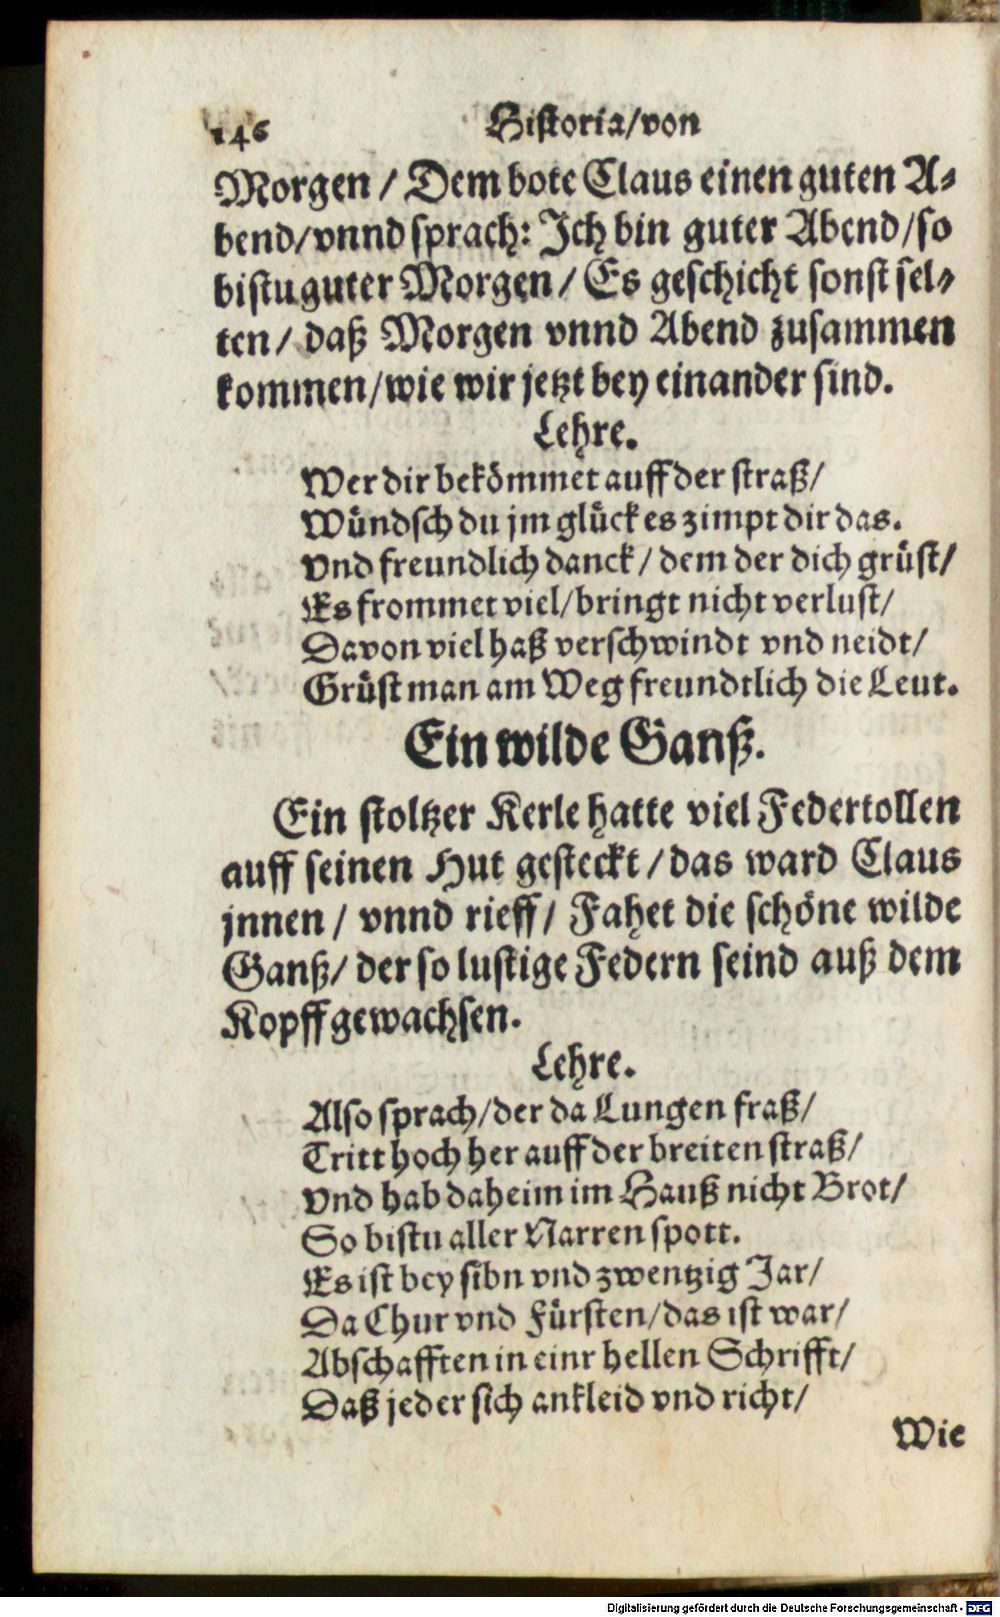 146 Historia/von
Morgen / Dem bote Claus einen guten A-
bend/vnnd sprach: Ich bin guter Abend/so
bistu guter Morgen/ Es geschicht sonst sel-
ten/ daß Morgen vnnd Abend zusammen
kommen/wie wir jetzt bey einander sind.
Lehre.
Wer dir bekömmet auff der straß/
Wündsch du jm glück es zimpt dir das.
Vnd freundlich danck/ dem der dich grüst/
Es frommet viel/bringt nicht verlust/
Davon viel haß verschwindt vnd neidt/
Grüst man am Weg freundtlich die Leut.
Ein wilde Ganß.
Ein stoltzer Kerle hatte viel Federtollen
auff seinen Hut gesteckt/das ward Claus
jnnen/ vnnd rieff/ Fahet die schöne wilde
Ganß/ der so lustige Federn seind auß dem
Kopff gewachsen.
Lehre.
Also sprach/der da Lungen fraß/
Tritt hoch her auff der breiten straß/
Vnd hab daheim im Hauß nicht Brot/
So bistu aller Narren spott.
Es ist bey sibn vnd zwentzig Jar/
Da Chur vnd Fürsten/das ist war/
Abschafften in einr hellen Schrifft/
Daß jeder sich ankleid vnd richt/
Wie
Digitalisierung gefördert durch die Deutsche Forschungsgemeinschaft - DFG